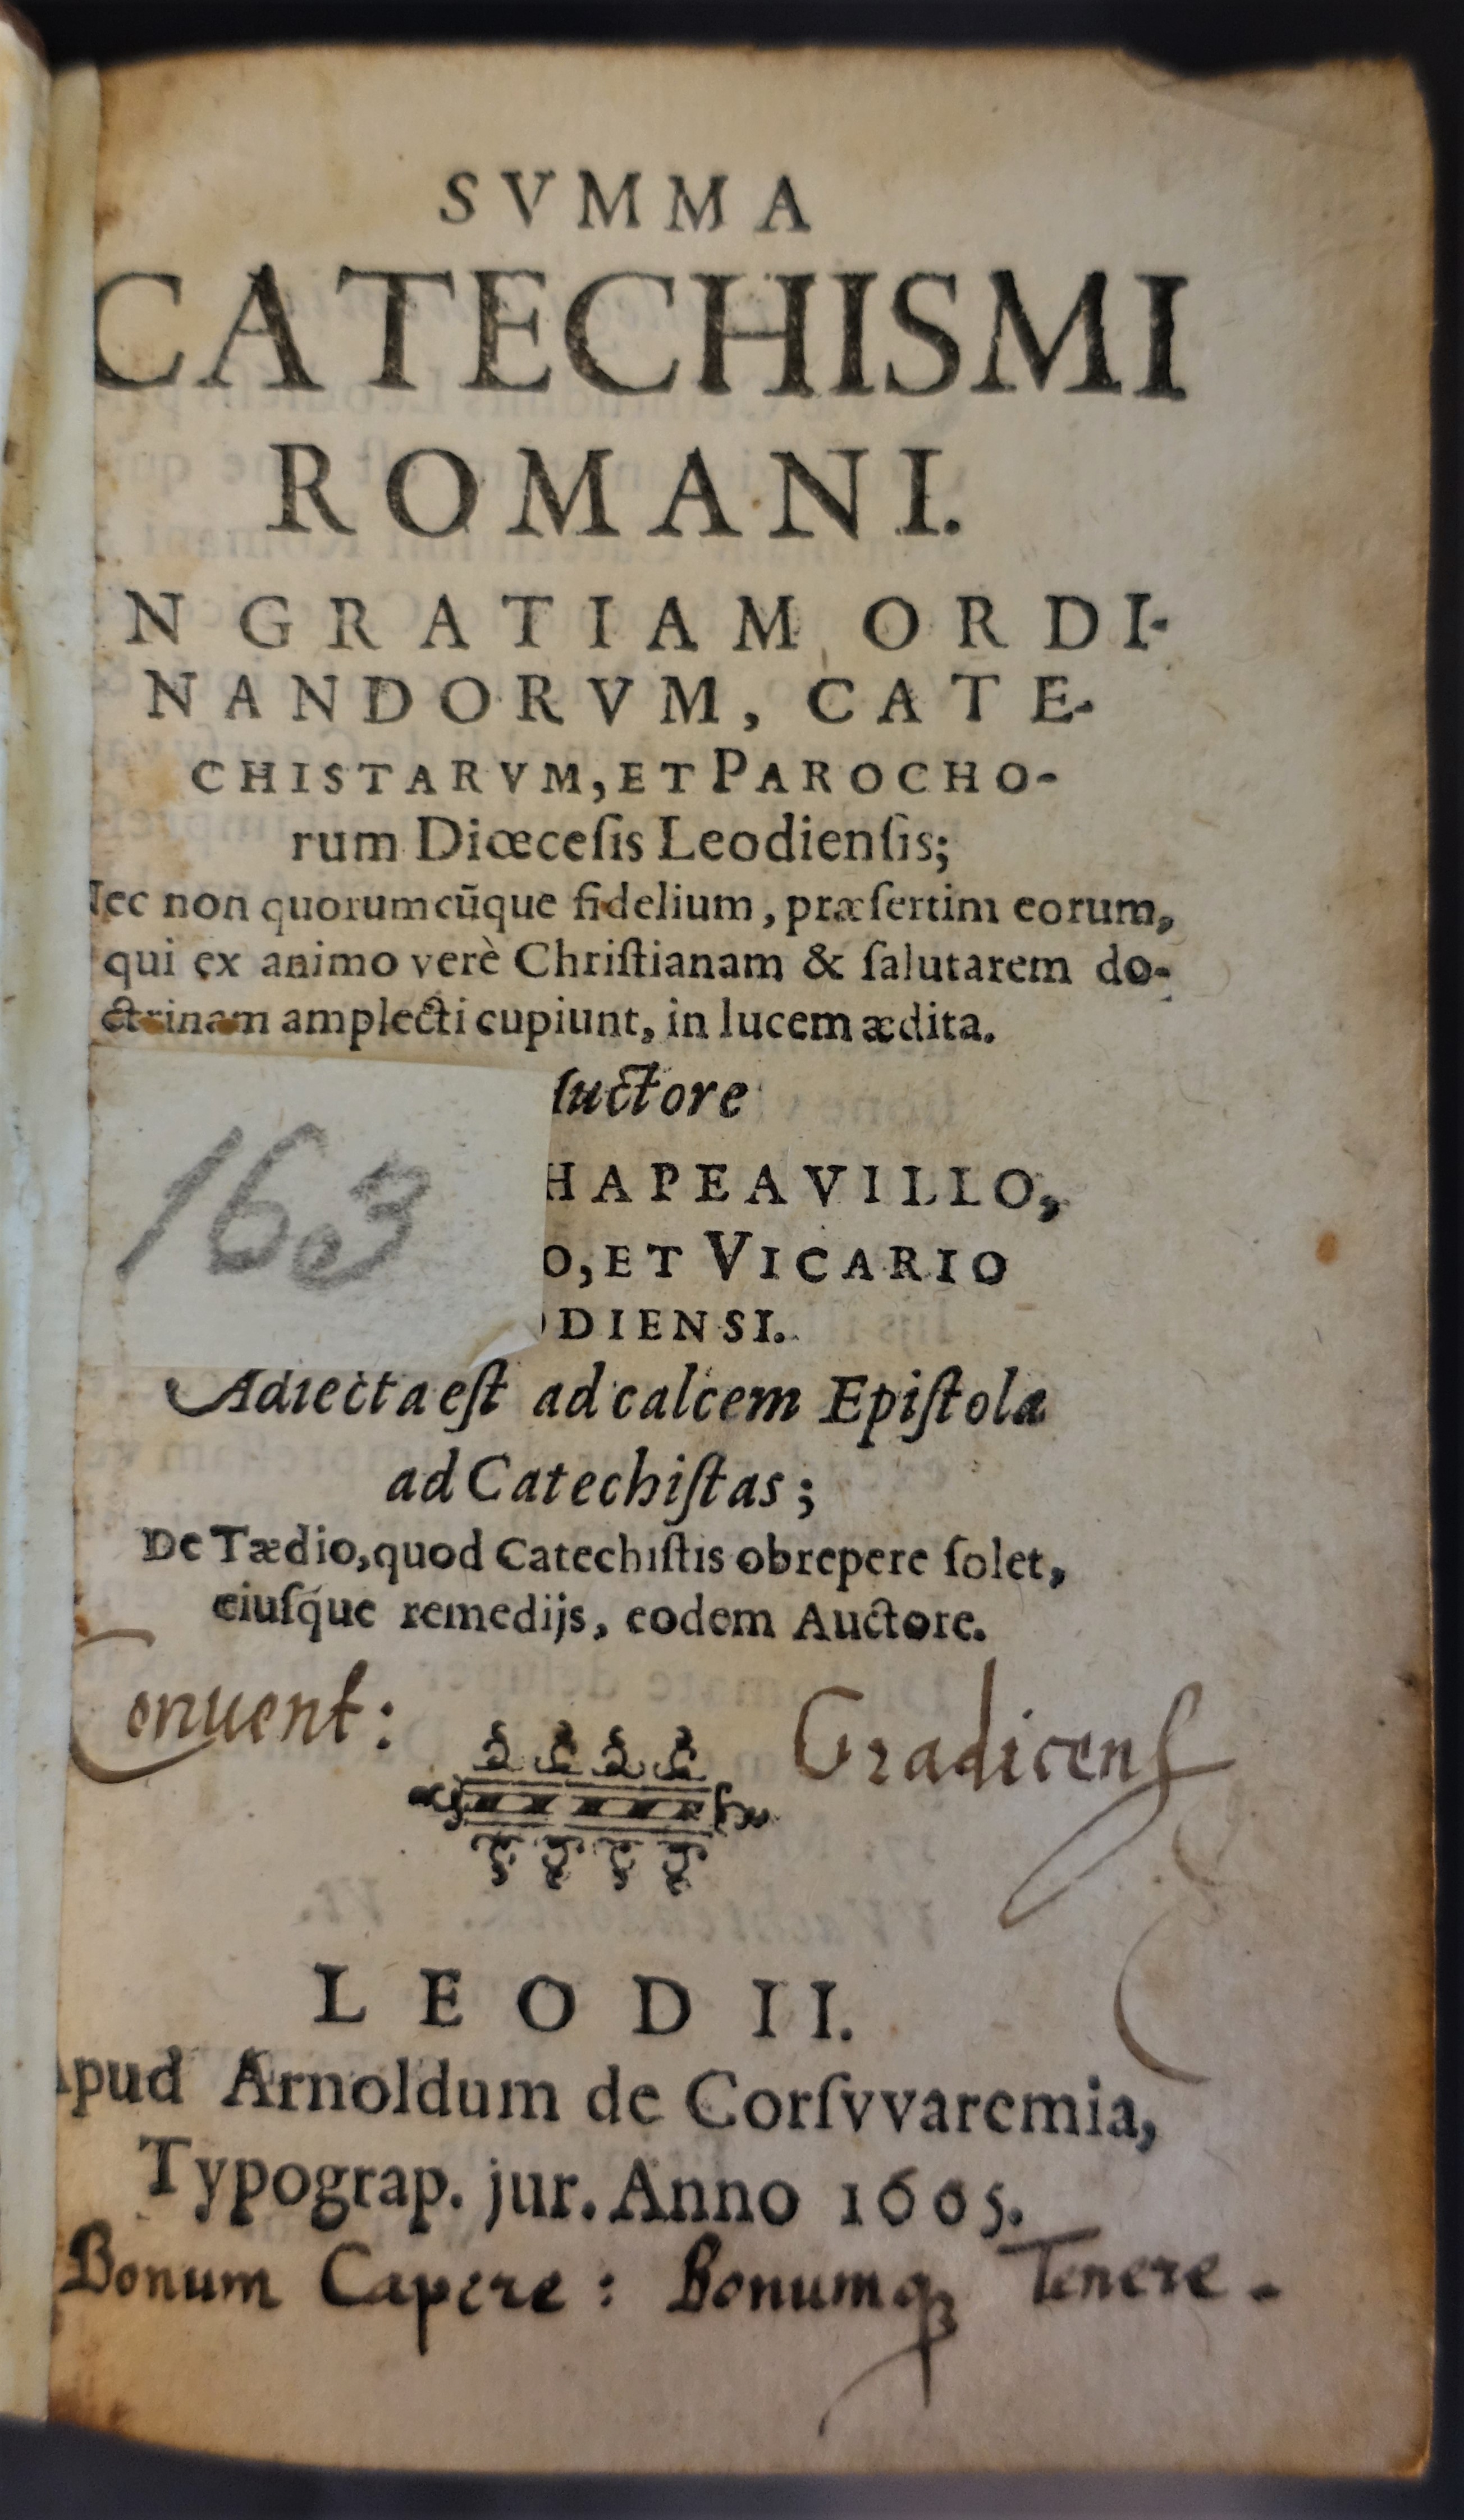 SVMMA
CATECHISMI
ROMANI.
N GRATIAM ORDI-
NANDORVM, CATE-
CHISTARVM, ET PAROCHO-
rum Diœceſis Leodienſis;
Nec non quorumcũque fidelium, præſertim eorum,
qui ex animo verè Chriſtianam & ſalutarem do-
ctrinam amplecti cupiunt, in lucem ædita.
uctore
HAPEAVILLO,
163
O, ET VICARIO
DIENSI.
Adiecta eſt ad calcem Epiſtola
ad Catechiſtas;
De Tædio, quod Catechiſtis obrepere ſolet,
eiuſq́ue remedijs, eodem Auctore.
Conuent: Gradicenſ
LEODII.
Apud Arnoldum de Corſvvaremia,
Typograp. jur. Anno 1605.
Bonum Capere: Bonumqꝫ Tenere.